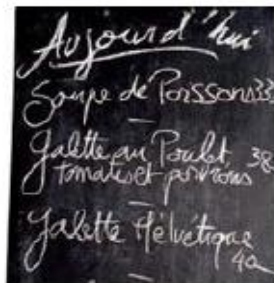 Aujourd'hui
Soupe de Poissons 33
Galette au Poulet 38
tomates et poivrons
Galette Helvétique
40